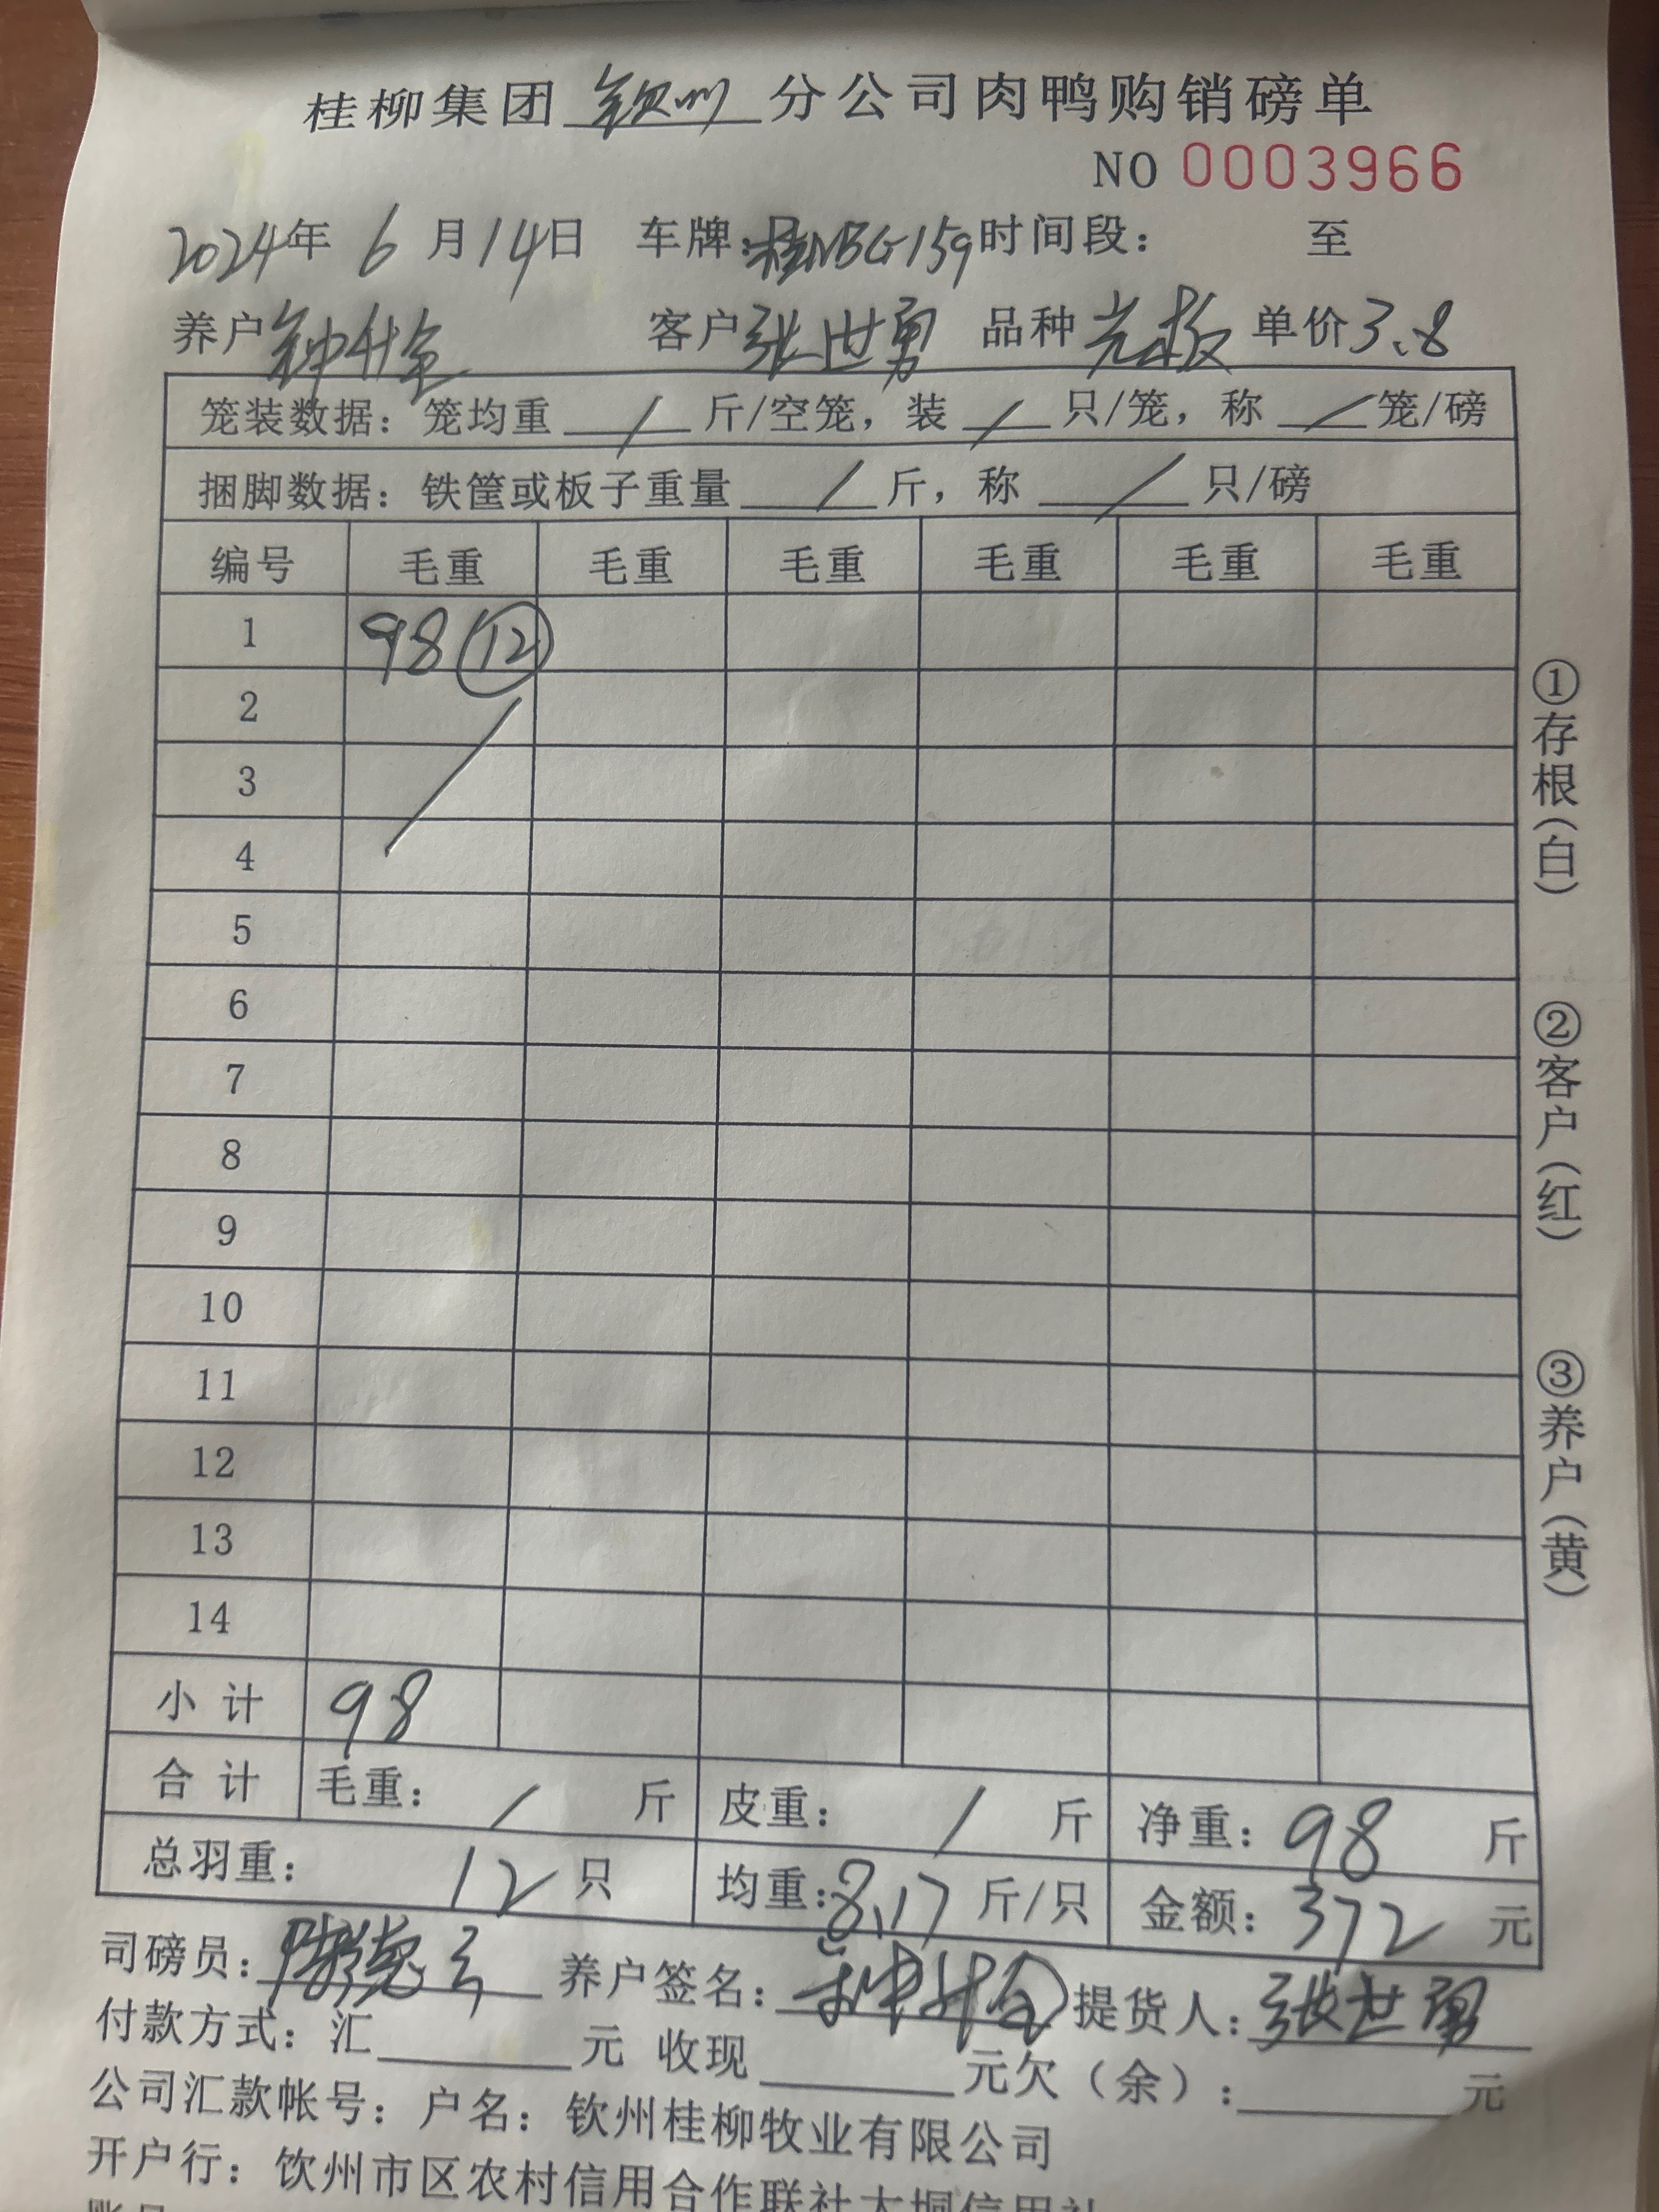 桂柳集团 钦州 分公司肉鸭购销磅单
NO 0003966
2024年 6 月14日 车牌:桂NBG159时间段: 至
养户 钟什全 客户 张世勇 品种 光板 单价3.8
笼装数据: 笼均重 / 斤/空笼, 装 / 只/笼, 称 / 笼/磅
捆脚数据: 铁筐或板子重量 / 斤, 称 / 只/磅
编号 毛重 毛重 毛重 毛重 毛重 毛重
1 98 ⑫
2
3
4
5
6
7
8
9
10
11
12
13
14
小计 98
合计 毛重: / 斤 皮重: / 斤 净重: 98 斤
总羽重: 12 只 均重:8.17 斤/只 金额: 372 元
司磅员: 养户签名: 提货人: 张世勇
付款方式: 汇 元 收现 元欠(余): 元
公司汇款帐号: 户名: 钦州桂柳牧业有限公司
开户行: 钦州市区农村信用合作联社大垌信用社
①存根(白) ②客户(红) ③养户(黄)